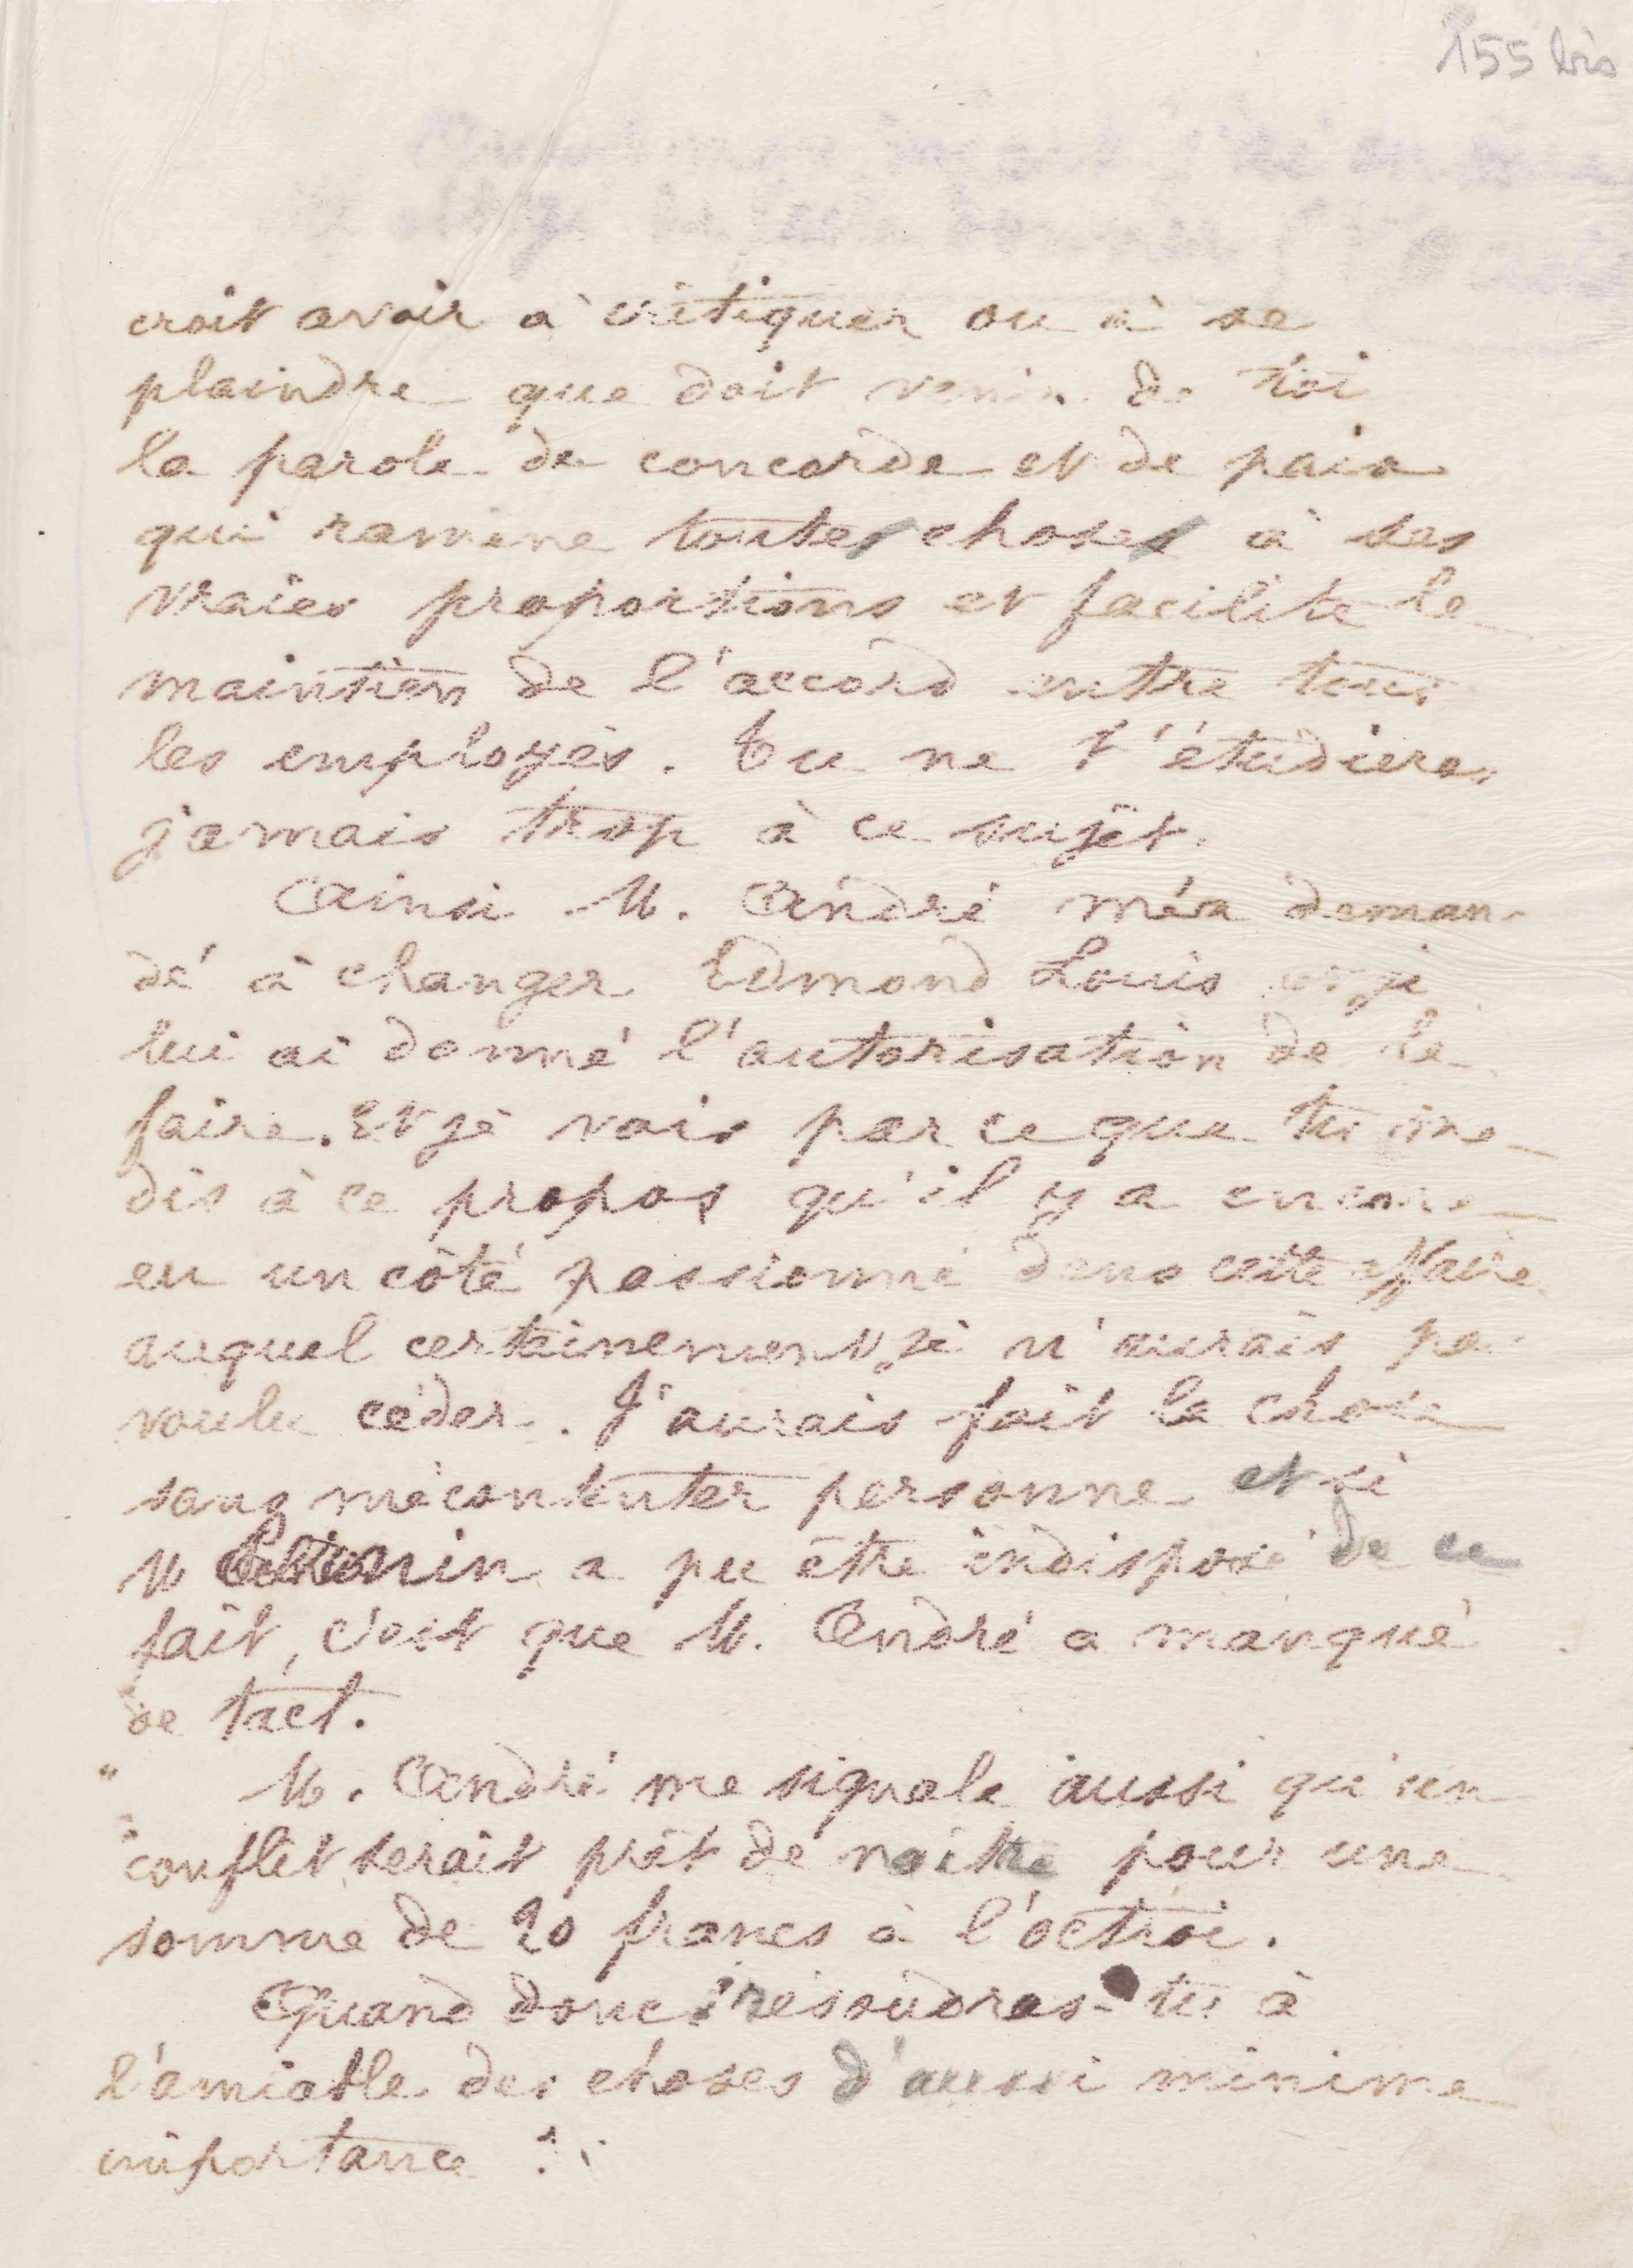 155 bis
croit avoir à critiquer ou à se
plaindre que doit venir de toi
la parole de concorde et de paix
qui ramène toutes choses à ses
vraies proportions et facilite le
maintien de l'accord entre tous
les employés. Tu ne t'étudieras
jamais trop à ce sujet.
Ainsi M. André m'a deman-
dé à changer Edmond Louis et je
lui ai donné l'autorisation de le
faire. Et je vois par ce que tu me
dis à ce propos qu'il y a encore
eu un côté passionné dans cette affaire
auquel certainement je n'aurais pas
voulu céder. J'aurais fait la chose
sans mécontenter personne et si
M a pu être indisposé de ce
fait, c'est que M. André a manqué
de tact.
" M. André me signale aussi qu'un
conflit serait prêt de naître pour une
somme de 20 francs à l'octroi.
Quand donc résoudras-tu à
l'amiable des choses d'aussi minime
importance ?